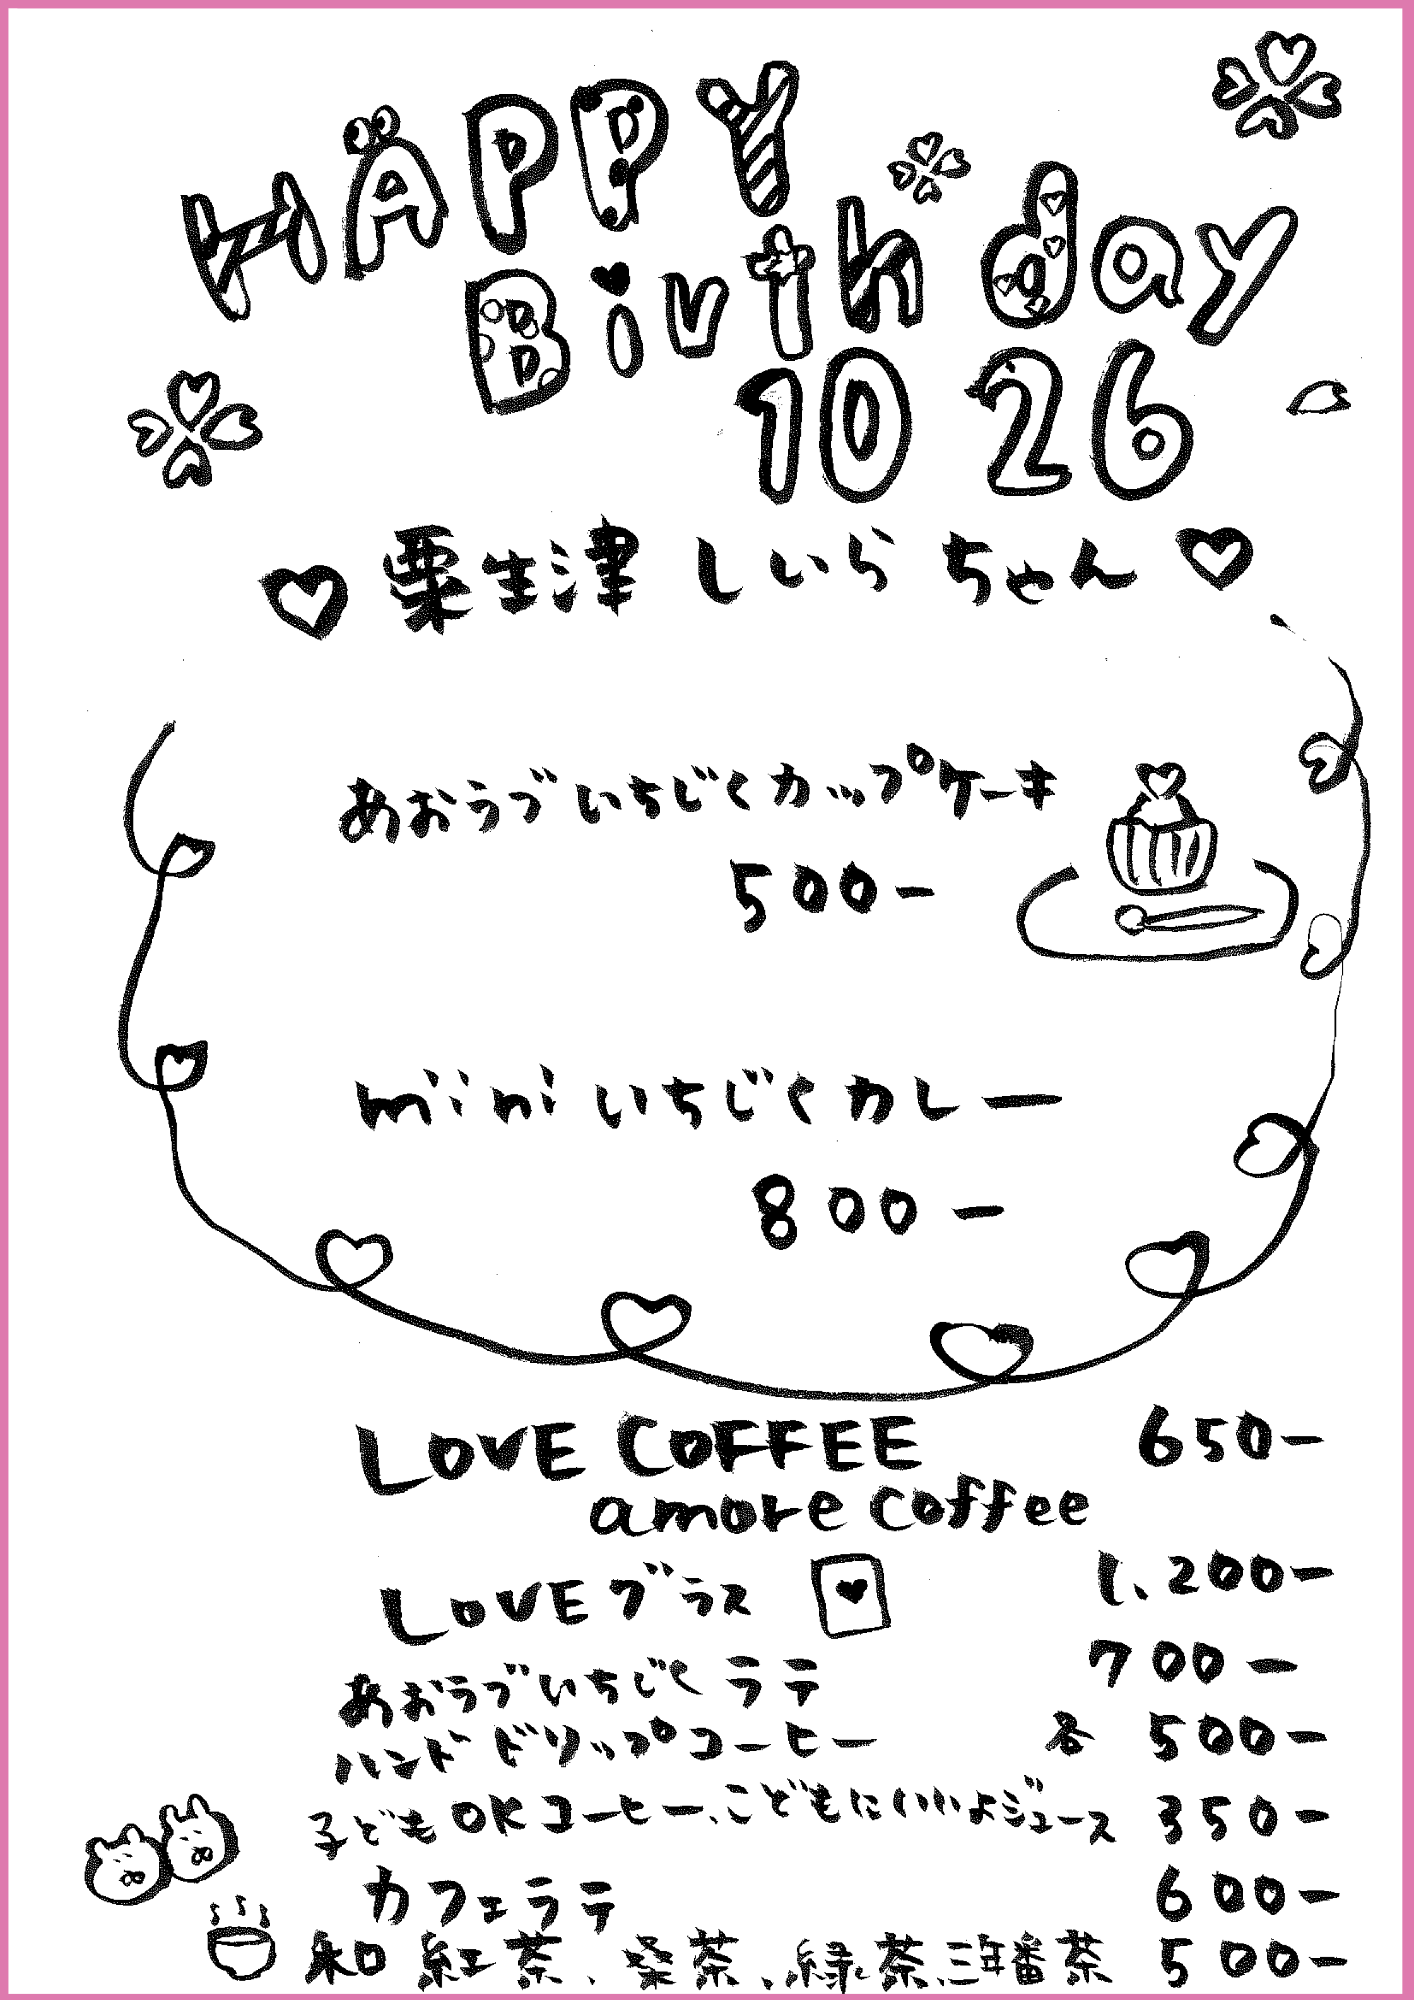 HAPPY
Birth day
10 26
粟生津 しいら ちゃん
あおうづ いちじくカップケーキ
500-
mini いちじくカレー
800-
LOVE COFFEE 650-
amore coffee
LOVE グラス 1,200-
あおうづいちじく ラテ 700-
ハンドドリップコーヒー 各 500-
子どもOKコーヒー、こどもにいいよジュース 350-
カフェラテ 600-
和紅茶、桑茶、緑茶、三年番茶 500-